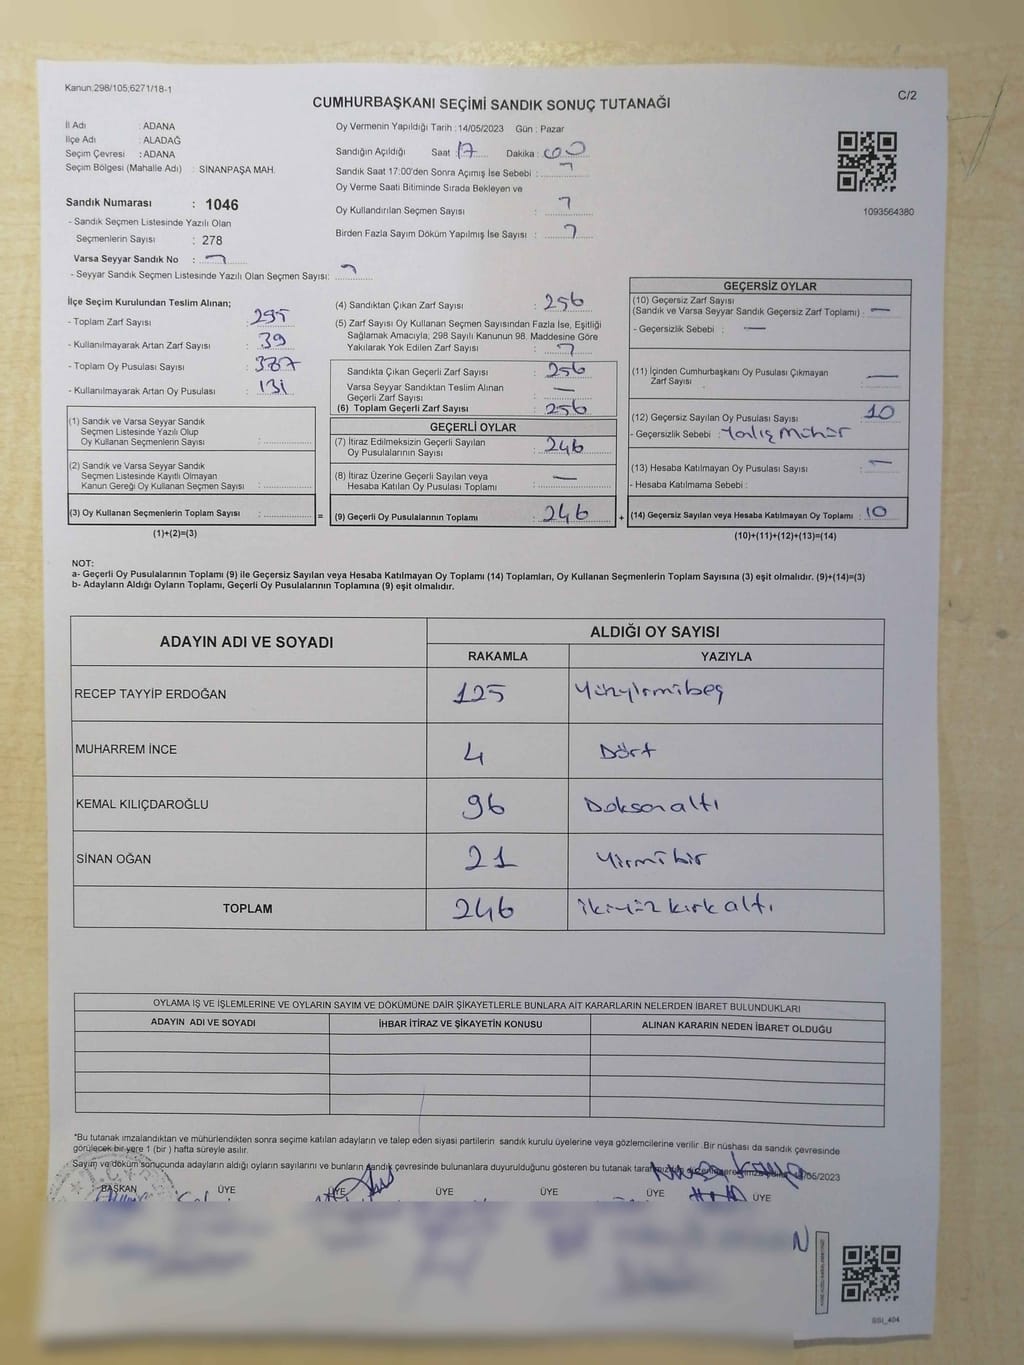 Kanun:298/105;6271/18-1
C/2
CUMHURBAŞKANI SEÇİMİ SANDIK SONUÇ TUTANAĞI
İl Adı : ADANA
İlçe Adı : ALADAĞ
Seçim Çevresi : ADANA
Seçim Bölgesi (Mahalle Adı) : SİNANPAŞA MAH.
Sandık Numarası : 1046
- Sandık Seçmen Listesinde Yazılı Olan
Seçmenlerin Sayısı : 278
Varsa Seyyar Sandık No :
- Seyyar Sandık Seçmen Listesinde Yazılı Olan Seçmen Sayısı:
Oy Vermenin Yapıldığı Tarih : 14/05/2023 Gün : Pazar
Sandığın Açıldığı Saat : 17 Dakika : 00
Sandık Saat 17:00'den Sonra Açımış İse Sebebi :
Oy Verme Saati Bitiminde Sırada Bekleyen ve
Oy Kullandırılan Seçmen Sayısı :
Birden Fazla Sayım Döküm Yapılmış İse Sayısı :
1093564380
İlçe Seçim Kurulundan Teslim Alınan;
- Toplam Zarf Sayısı : 295
- Kullanılmayarak Artan Zarf Sayısı : 39
- Toplam Oy Pusulası Sayısı : 387
- Kullanılmayarak Artan Oy Pusulası : 131
(1) Sandık ve Varsa Seyyar Sandık
Seçmen Listesinde Yazılı Olup
Oy Kullanan Seçmenlerin Sayısı :
(2) Sandık ve Varsa Seyyar Sandık
Seçmen Listesinde Kayıtlı Olmayan
Kanun Gereği Oy Kullanan Seçmen Sayısı :
(3) Oy Kullanan Seçmenlerin Toplam Sayısı :
=
(1)+(2)=(3)
(4) Sandıktan Çıkan Zarf Sayısı : 256
(5) Zarf Sayısı Oy Kullanan Seçmen Sayısından Fazla İse, Eşitliği
Sağlamak Amacıyla; 298 Sayılı Kanunun 98. Maddesine Göre
Yakılarak Yok Edilen Zarf Sayısı :
Sandıkta Çıkan Geçerli Zarf Sayısı : 256
Varsa Seyyar Sandıktan Teslim Alınan
Geçerli Zarf Sayısı : —
(6) Toplam Geçerli Zarf Sayısı : 256
GEÇERLİ OYLAR
(7) İtiraz Edilmeksizin Geçerli Sayılan
Oy Pusulalarının Sayısı : 246
(8) İtiraz Üzerine Geçerli Sayılan veya
Hesaba Katılan Oy Pusulası Toplamı : —
(9) Geçerli Oy Pusulalarının Toplamı : 246
+
GEÇERSİZ OYLAR
(10) Geçersiz Zarf Sayısı
(Sandık ve Varsa Seyyar Sandık Geçersiz Zarf Toplamı) : —
- Geçersizlik Sebebi : —
(11) İçinden Cumhurbaşkanı Oy Pusulası Çıkmayan
Zarf Sayısı : —
(12) Geçersiz Sayılan Oy Pusulası Sayısı : 10
- Geçersizlik Sebebi : Yanlış Mühür
(13) Hesaba Katılmayan Oy Pusulası Sayısı : —
- Hesaba Katılmama Sebebi :
(14) Geçersiz Sayılan veya Hesaba Katılmayan Oy Toplamı : 10
(10)+(11)+(12)+(13)=(14)
NOT:
a- Geçerli Oy Pusulalarının Toplamı (9) ile Geçersiz Sayılan veya Hesaba Katılmayan Oy Toplamı (14) Toplamları, Oy Kullanan Seçmenlerin Toplam Sayısına (3) eşit olmalıdır. (9)+(14)=(3)
b- Adayların Aldığı Oyların Toplamı, Geçerli Oy Pusulalarının Toplamına (9) eşit olmalıdır.
ADAYIN ADI VE SOYADI
ALDIĞI OY SAYISI
RAKAMLA YAZIYLA
RECEP TAYYİP ERDOĞAN 125 Yüzyirmibeş
MUHARREM İNCE 4 Dört
KEMAL KILIÇDAROĞLU 96 Doksanaltı
SİNAN OĞAN 21 Yirmibir
TOPLAM 246 ikiyüz kırk altı
OYLAMA İŞ VE İŞLEMLERİNE VE OYLARIN SAYIM VE DÖKÜMÜNE DAİR ŞİKAYETLERLE BUNLARA AİT KARARLARIN NELERDEN İBARET BULUNDUKLARI
ADAYIN ADI VE SOYADI İHBAR İTİRAZ VE ŞİKAYETİN KONUSU ALINAN KARARIN NEDEN İBARET OLDUĞU
*Bu tutanak imzalandıktan ve mühürlendikten sonra seçime katılan adayların ve talep eden siyasi partilerin sandık kurulu üyelerine veya gözlemcilerine verilir .Bir nüshası da sandık çevresinde
görülecek bir yere 1 (bir ) hafta süreyle asılır.
Sayım ve döküm sonucunda adayların aldığı oyların sayılarını ve bunların sandık çevresinde bulunanlara duyurulduğunu gösteren bu tutanak /05/2023
BAŞKAN ÜYE ÜYE ÜYE ÜYE ÜYE ÜYE
N
SSI_404